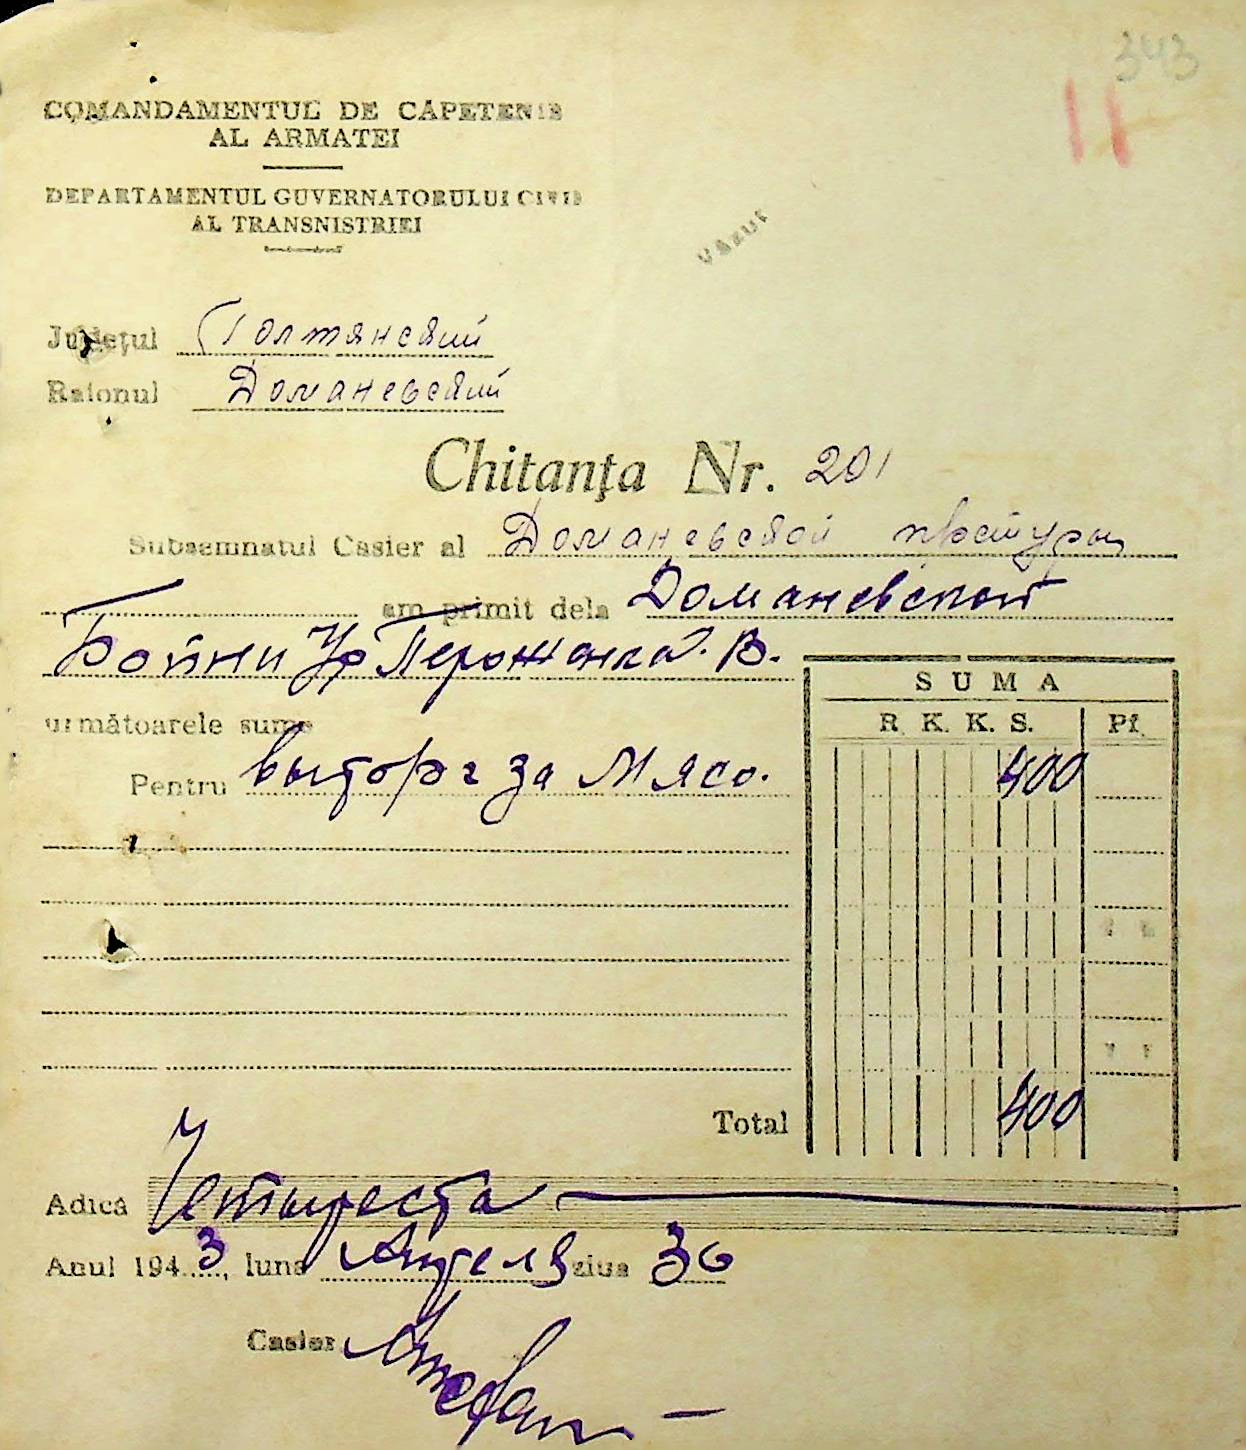 343
11
COMANDAMENTUL DE CĂPETENIE
AL ARMATEI
DEPARTAMENTUL GUVERNATORULUI CIVIL
AL TRANSNISTRIEI
VĂZUT
Județul Голтянский
Raionul Доманевский
Chitanța Nr. 201
Subsemnatul Casier al Доманевской претуры
am primit dela Доманевской
Бойни В.
SUMA
următoarele sume R. K. K. S. Pf.
Pentru выторг за Мясо. 400
Total 400
Adică Четыреста
Anul 1943, luna Апреля ziua 30
Casier